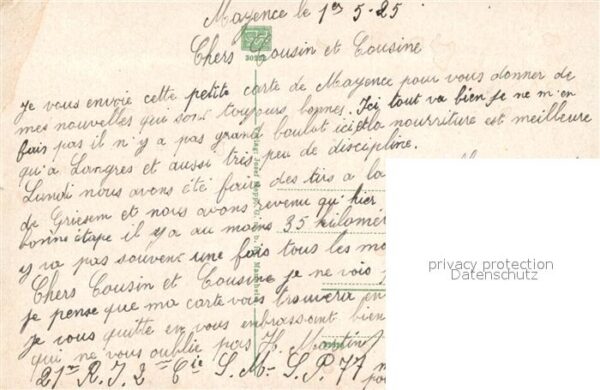 Mayence le 1er 5-25
Chers Cousin et Cousine
Je vous envoie cette petite carte de Mayence pour vous donner de
mes nouvelles qui sont toujours bonnes. Ici tout va bien je ne m'en
fais pas il n'y a pas grand boulot ici et la nourriture est meilleure
qu'a Langres et aussi très peu de discipline.
Lundi nous avons été faire des tirs a la
de Griesem et nous avons revenu qu'hier
bonne étape il y a au moins 35 kilomé
y va pas souvent une fois tous les mo
Chers Cousin et Cousine je ne vois
je pense que ma carte vous trouvera en
je vous quitte en vous embrassant bien
qui ne vous oublie pas
21me R.I. 2me Cie S.M. S.P. 77
privacy protection
Datenschutz